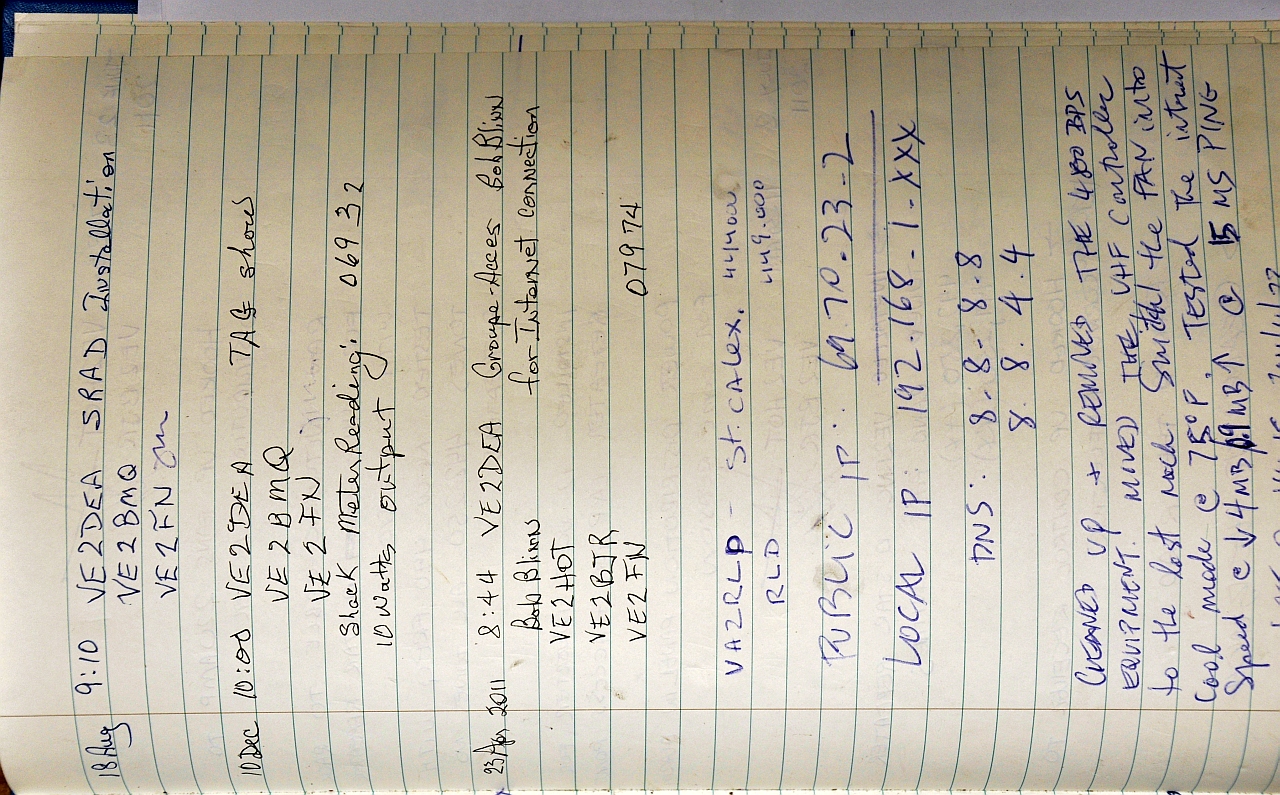 18 Aug 9:10 VE2DEA SRAD Installation
VE2BMQ
VE2FN
10 Dec 10:00 VE2DEA TAG shows
VE2BMQ
VE2FN
Shack Meter Reading: 06932
10 Watts output
23 Apr 2011 8:44 VE2DEA Groupe-Acces Bob Blinn
Bob Blinn for Internet connection
VE2HOT
VE2BJR
VE2FN 07974
VA2RLD - St. CALex. 444000
RLD 449.000
PUBLIC IP: 69.70.23-2
LOCAL IP: 192.168-1-XXX
DNS: 8.8-8.8
8.8.4.4
CLEANED UP + REMOVED THE 4800 BPS
EQUIPMENT. MOVED THE VHF Controller
to the last rack. Switched the FAN into
Cool mode @ 75° F. Tested The intrnt
Speed @ ↓ 4MB 0.9 MB↑ @ 15 MS PING